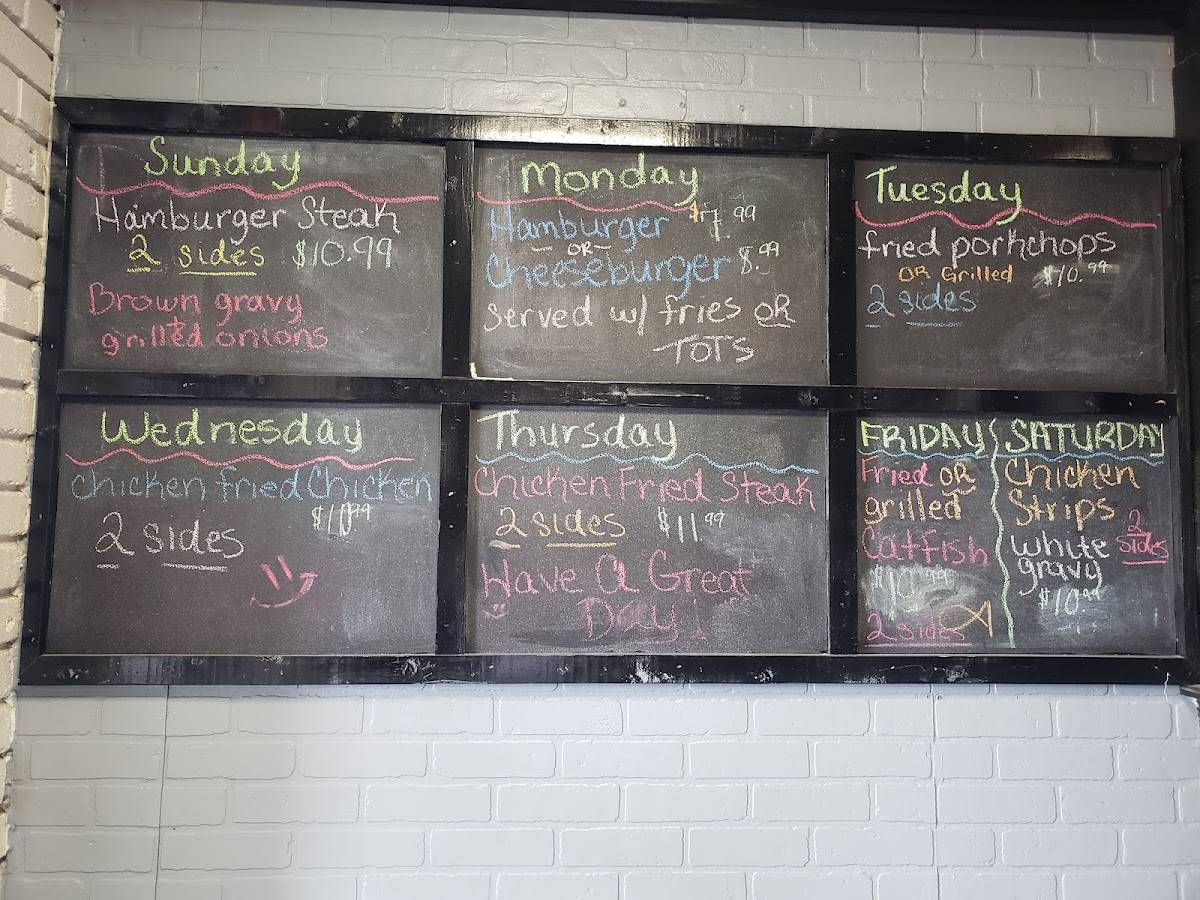 Sunday
Hamburger Steak
2 sides $10.99
Brown gravy
grilled onions
Monday
Hamburger $7.99
OR
Cheeseburger 8.99
Served w/ fries OR
TOTS
Tuesday
fried porkchops
OR Grilled $10.99
2 sides
Wednesday
Chicken fried Chicken
$10.99
2 sides
Thursday
Chicken Fried Steak
2 sides $11.99
Have A Great
Day!
FRIDAY
Fried OR
grilled
Catfish
$10.99
2 sides
SATURDAY
Chicken
Strips
2
sides
white
gravy
$10.99